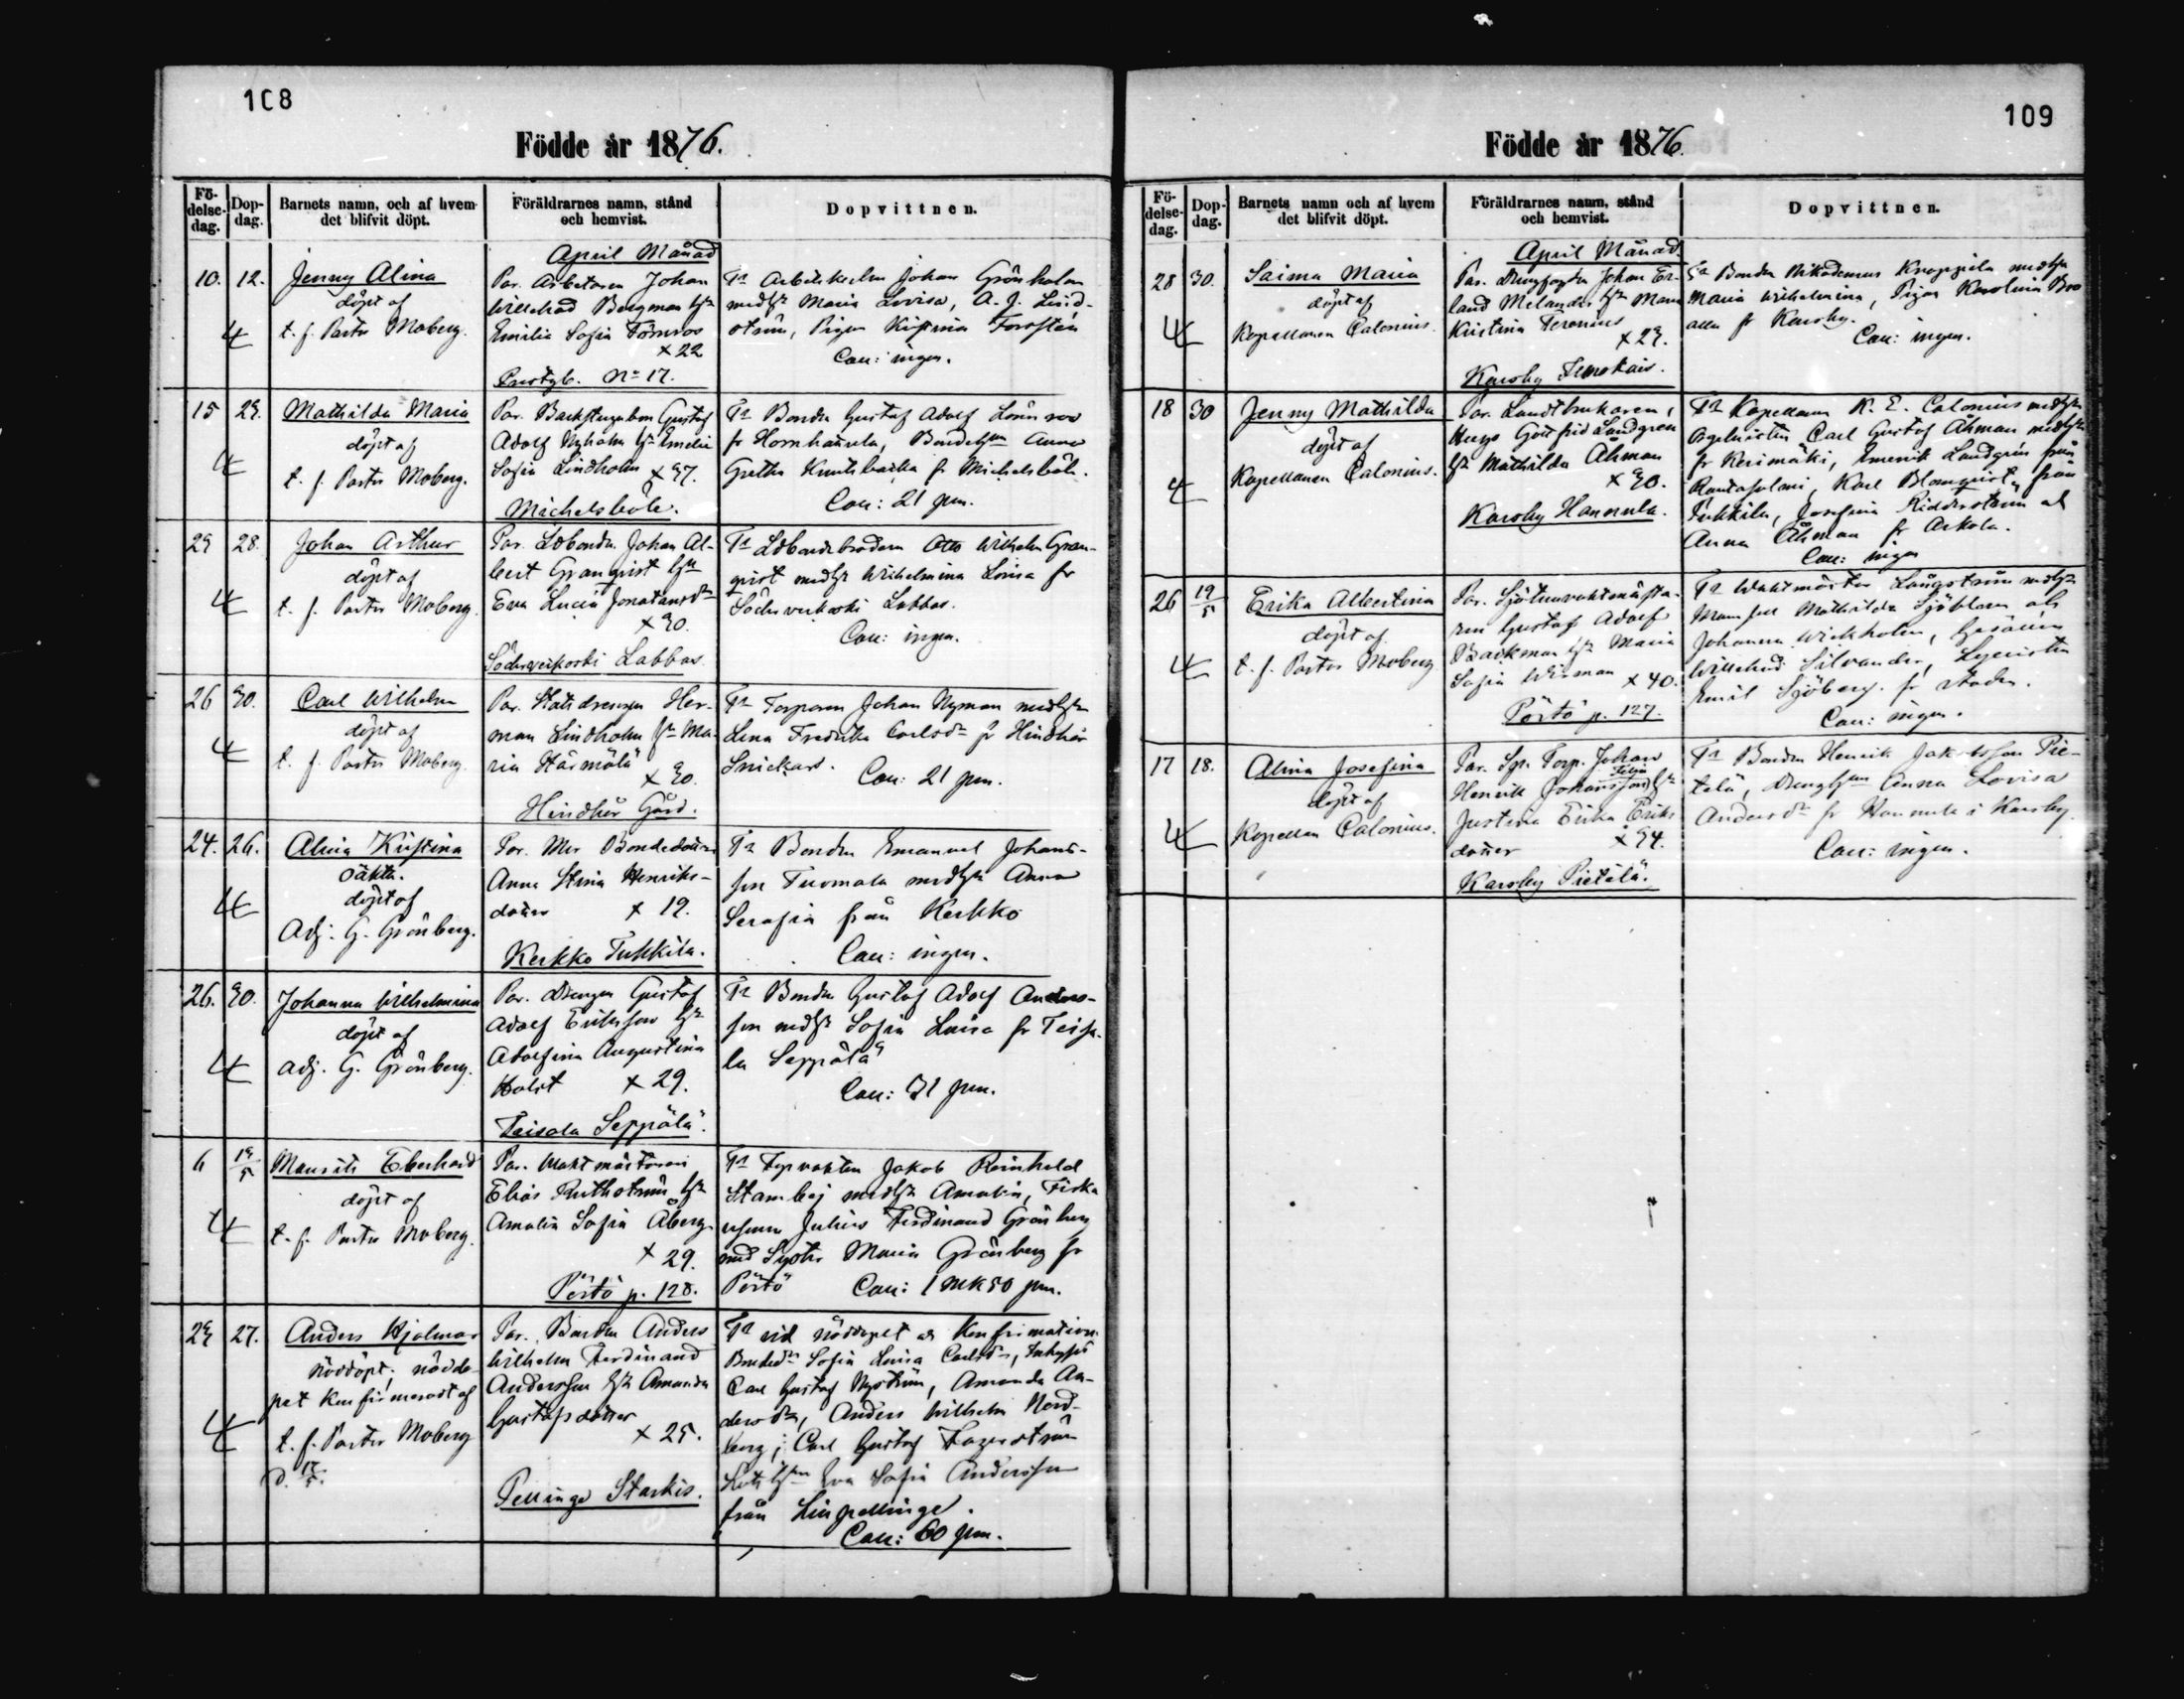 108
Födde år 1876.
Fö-
delse-
dag.
Dop-
dag.
Barnets namn, och af hvem
det blifvit döpt.
Föräldrarnes namn, stånd
och hemvist.
Dopvittnen.
April Månad
10. 12.
Jenny Alina
döpt af
t. f. Pastor Moberg.
Par. Arbetaren Johan
Willehad Bergman hst
Emilia Sofia Törnroos
x 22
No 17.
Johan Grönholm
medhst Maria Lovisa, A. J. Lind-
ström, Pigan Kristina Forstén
Cau: ingen.
15 23.
Mathilda Maria
döpt af
t. f. Pastor Moberg.
Par. Gustaf
Adolf Nyholm hst Emelie
Sofia Lindholm x 37.
Michelsböle.
Tr Bonden Gustaf Adolf
fr Hornhattula, Anna
Greta fr Michelsböle.
Cau: 21 pen.
23 28.
Johan Arthur
döpt af
t. f. Pastor Moberg.
Par. Ldbonden Johan Al-
bert Granqvist hst
Eva Lucia Jonatansdr
x 30.
Söderveikoski Labbas.
Tr Ldbondebrodern Otto Wilhelm Gran-
qvist medhst Wilhelmina Lovisa fr
Söderveikoski Labbas.
Cau: ingen.
26 30.
Carl Wilhelm
döpt af
t. f. Pastor Moberg.
Par. Statsdrengen Her-
man Lindholm hst Ma-
ria Härmälä
x 30.
Hindhår Gård.
Tr Torparen Johan Nyman medhst
Lena Fredrika Carlsdr fr Hindhår
Snickars. Cau: 21 pen.
24. 26.
Alina Kristina
oäkta.
döpt af
Adj. G. Grönberg.
Par. Mor Bondedottren
Anna Stina Henriks-
dotter x 19.
Kerkko Tukkila.
Tr Bonden Emanuel Johans-
son Tuomala medhst Anna
Serafia från Kerkko
Cau: ingen.
26. 30.
Johanna Wilhelmina
döpt af
Adj. G. Grönberg.
Par. Drengen Gustaf
Adolf Eriksson hst
Adolfina Augustina
Holst x 29.
Teisala Seppälä.
Tr Bonden Gustaf Adolf Anders-
son medhst Sofia Lovisa fr Teisa-
la Seppälä
Cau: 21 pen.
6 13/5
Mauritz Eberhard
döpt af
t. f. Pastor Moberg.
Par. Waktmästaren
Elias Ruthström hst
Amalia Sofia Åberg
x 29.
Pörtö p. 128.
Tr Fyrvakten Jakob Reinhold
Stambej medhst Amalia, Fiska
Julius Ferdinand Grönberg
med Syster Maria Grönberg fr
Pörtö Cau: 1 mk 50 pen.
23 27.
Anders Hjalmar
nöddöpt; nöddo-
pet konfirmeradt af
t. f. Pastor Moberg
Par. Bonden Anders
Wilhelm Ferdinand
Andersson hst Amanda
Gustafsdotter
x 25.
Pellinge Starkis.
Tr vid nöddopet o Konfirmation.
Sofia Lovisa Carlsdr,
Carl Gustaf Nyström, Amanda An-
dersdr, Anders Wilhelm Nord-
berg; Carl Gustaf Fagerström
Eva Sofia Andersson
från Lillpellinge.
Cau: 60 pen.
109
Födde år 1876.
Fö-
delse-
dag.
Dop-
dag.
Barnets namn och af hvem
det blifvit döpt.
Föräldrarnes namn, stånd
och hemvist.
Dopvittnen.
April Månad.
28 30.
Saima Maria
döpt af
Kapellanen Calonius.
Par. Johan Er-
land Melander hst Maria
Kristina
x 23.
Karsby
Tr Bonden Nikodemus Knoppila medhst
Maria Wilhelmina, Pigan Karolina
fr Karsby.
Cau: ingen.
18 30
Jenny Mathilda
döpt af
Kapellanen Calonius.
Par. Landtbrukaren,
Hugo Gottfrid Landgren
hst Mathilda Åhman
x 30.
Karsby Hannula.
Tr Kapellanen K. E. Calonius medhst
Carl Gustaf Åhman medhst
fr Kerimäki, Emerik Landgrén från
Karl Blomqvist, från
Tukkila, Josefina Ridderström o
Anna Åhman fr Askola.
Cau: ingen
26 12/5
Erika Albertina
döpt af
t. f. Pastor Moberg
Par. Sjötullvaktmästa-
ren Gustaf Adolf
Backman hst Maria
Sofia Wirman x 40.
Pörtö p. 127.
Tr Waktmästar Långström medhst
Mamsell Mathilda Sjöblom o
Johanna Wickholm, Gesällen
Willehad Silvander, Lyceisten
Emil Sjöberg. fr staden.
Cau: ingen.
17 18.
Alina Josefina
döpt af
Kapellan Calonius.
Par. Sp. Torp. Johan
Henrik Johansson hst
Justina Erika Eriks
dotter x 34.
Karsby Pietilä.
Tr Bonden Henrik Jakobsson Pie-
tilä, Drenghstn Anna Lovisa
Andersdr fr Hannula i Karsby.
Cau: ingen.